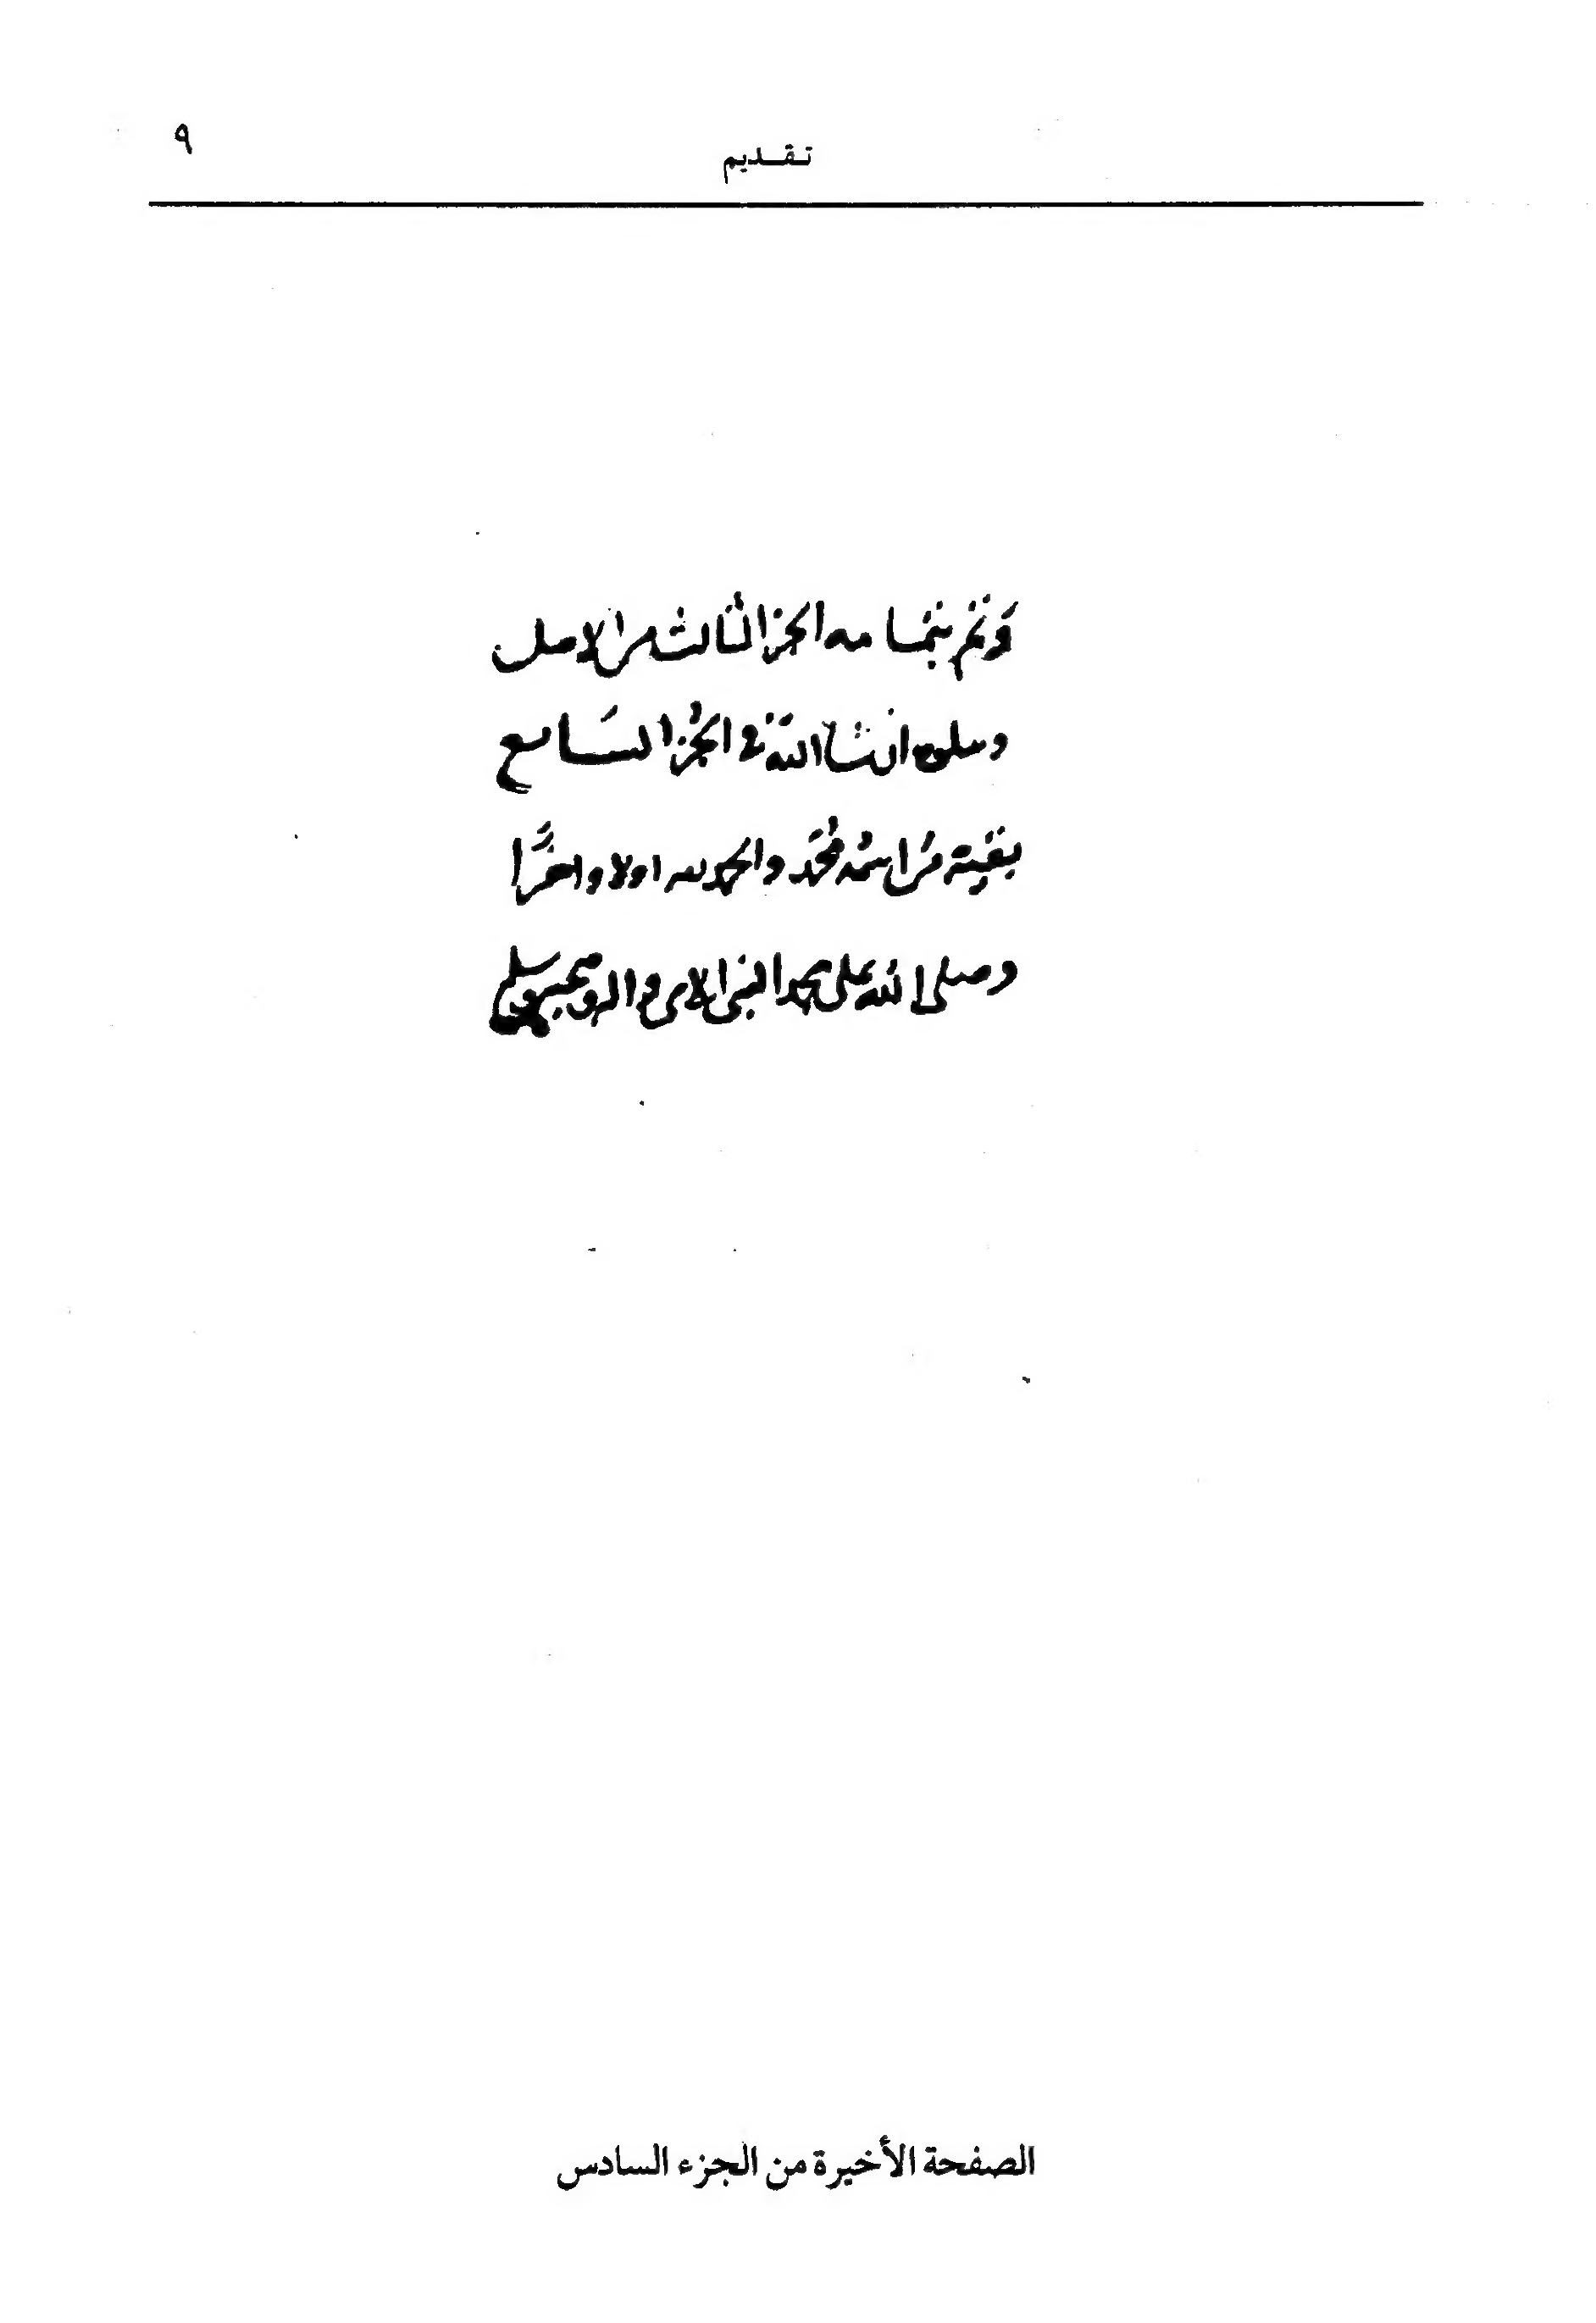 تقديم
٩
وتم بتمامه الجز الثالث من الاصل
وىىلوه ان شا الله فى الجز السابع
بقية من اسمه محمد والحمد لله اولا واخرًا
وصلى الله على محمد النبى الامى واله وصحبه وسلم
الصفحة الأخيرة من الجزء السادس